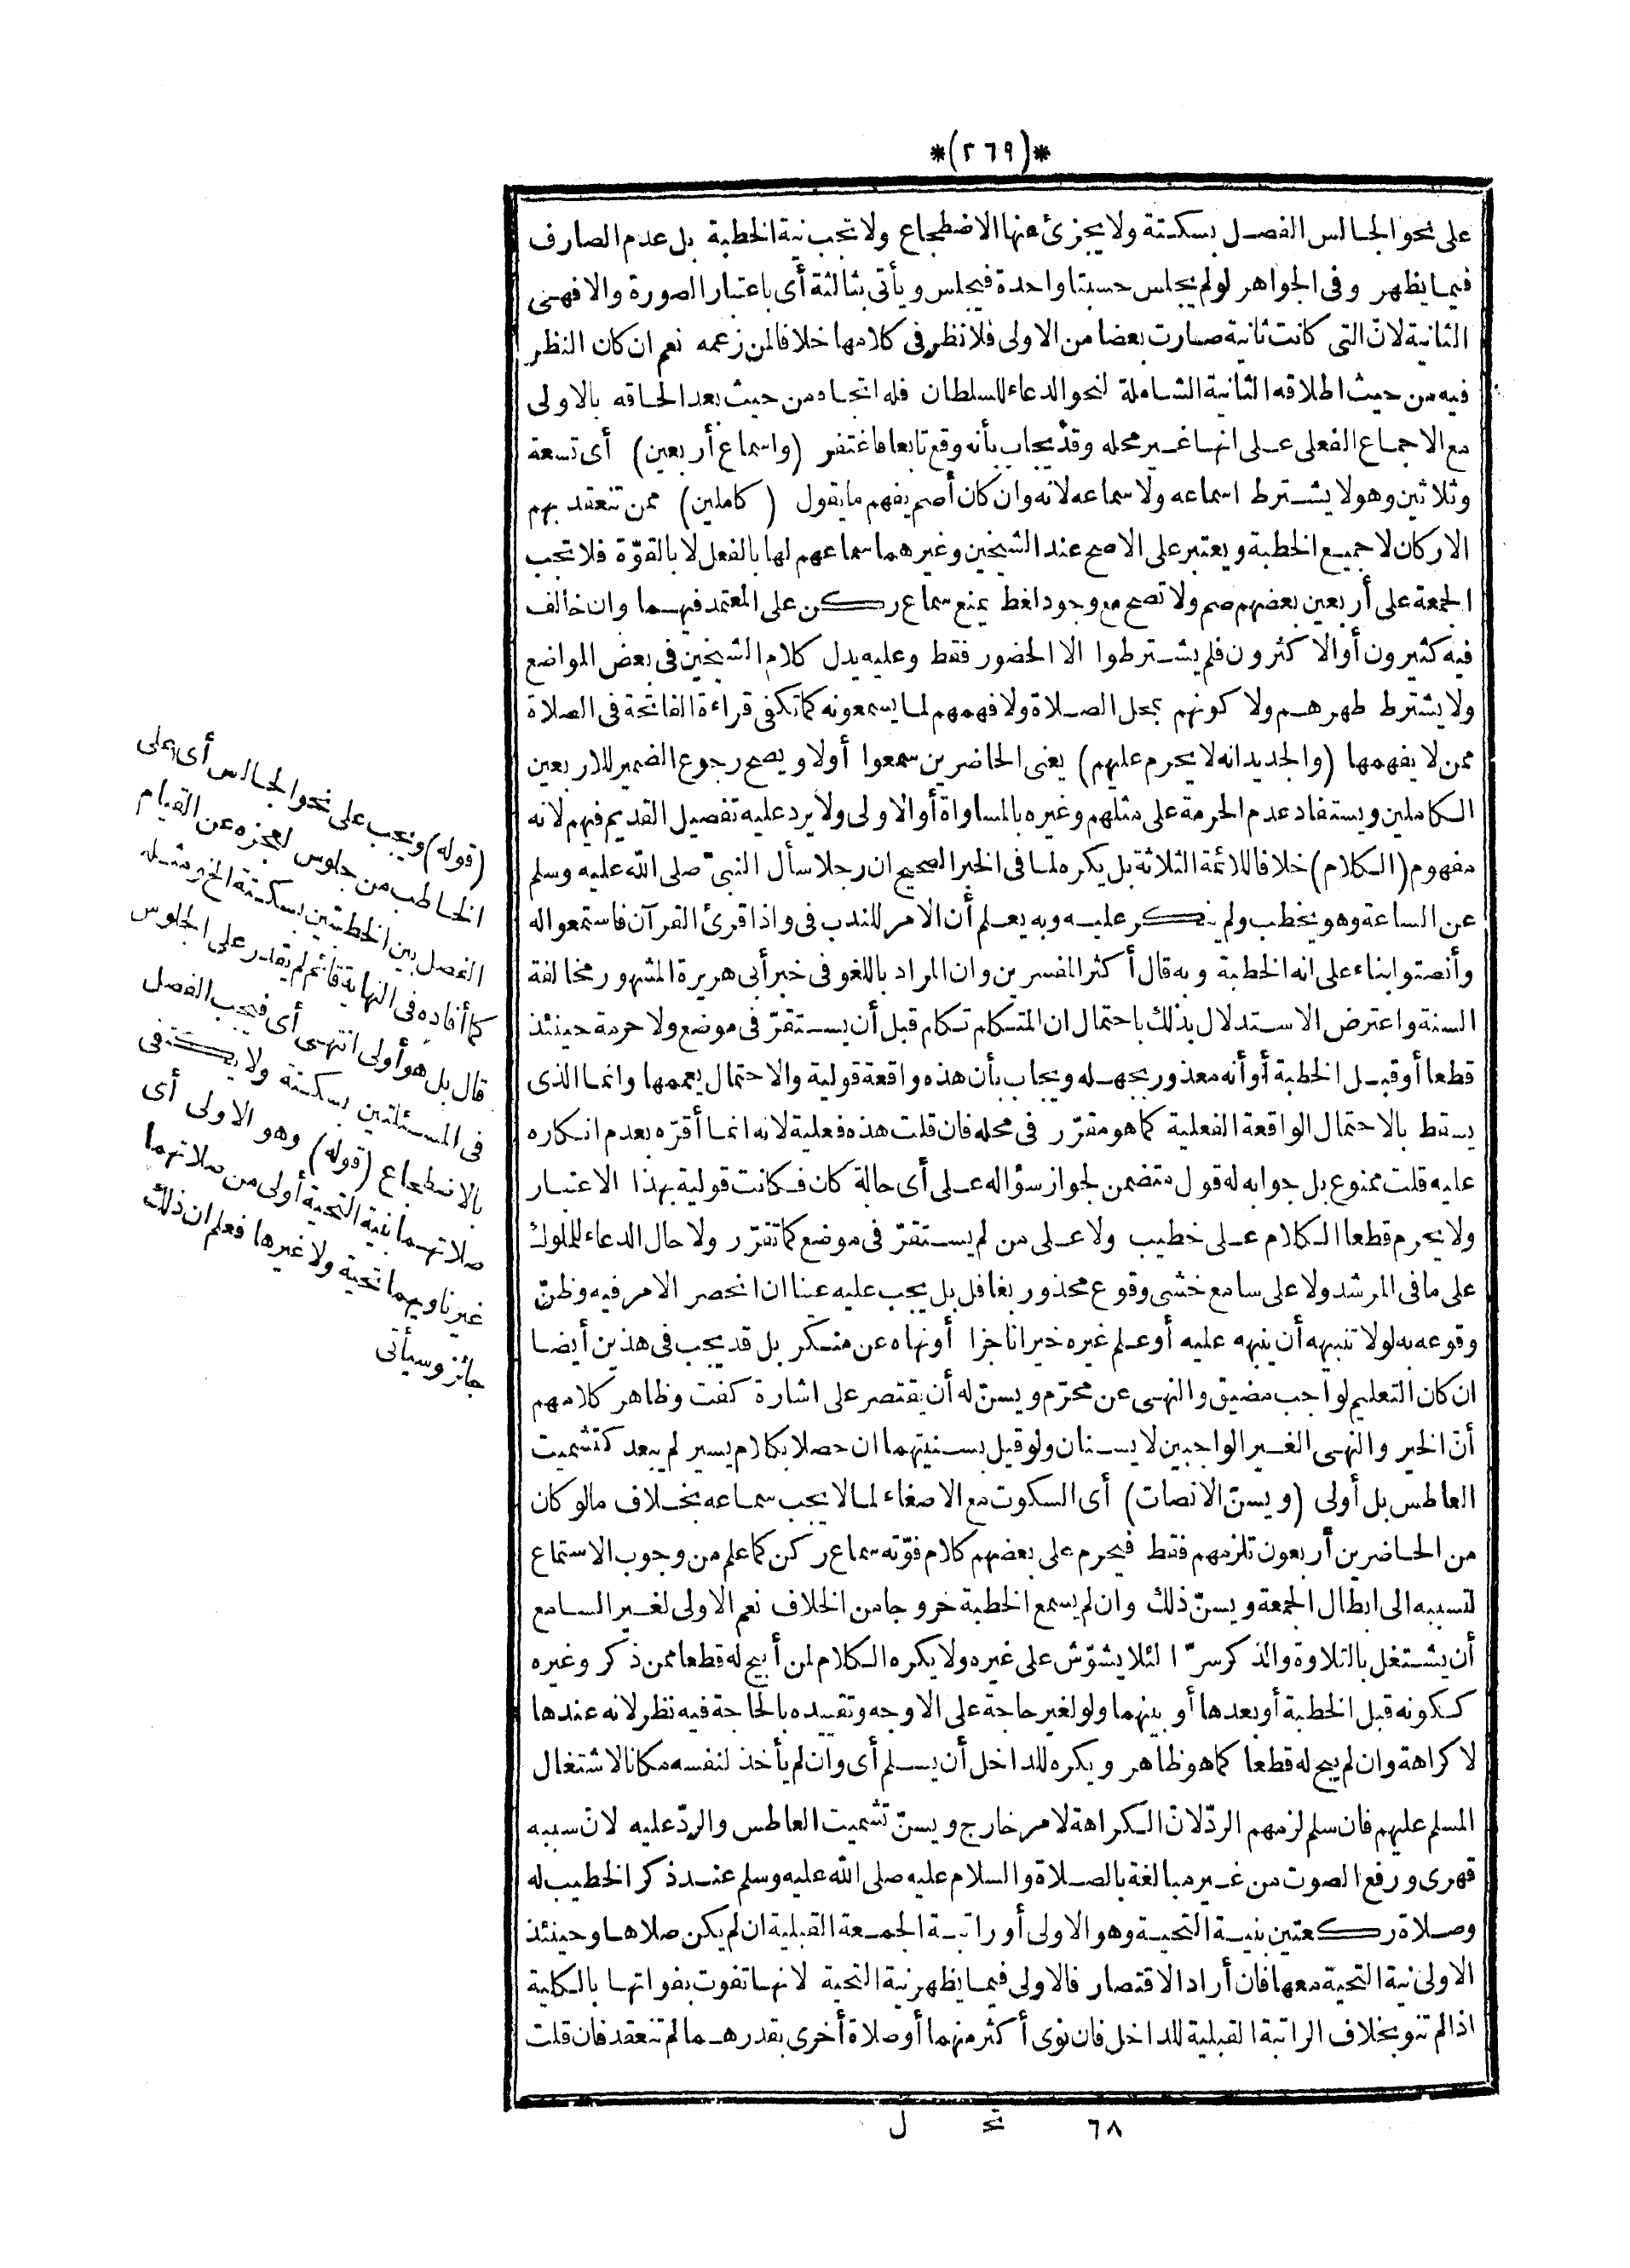 *(٢٦٩)*
على نحو الجالس الفصل بسكتة ولا يجزئ عنها الاضطجاع ولا تجب نية الخطبة بل عدم الصارف
فيما يظهر وفى الجواهر لو لم يجلس حسبتا واحدة فيجلس ويأتى بثالثة أى باعتبار الصورة والا فهى
الثانية لانّ التى كانت ثانية صارت بعضا من الاولى فلا نظر فى كلامها خلافا لمن زعمه نعم ان كان النظر
فيه من حيث اطلاقه الثانية الشاملة لنحو الدعاء للسلطان فله اتجاه من حيث بعد الحاقه بالاولى
مع الاجماع الفعلى على انها غير محله وقد يجاب بأنه وقع تابعا فاغتفر (واسماع أربعين) أى تسعة
وثلاثين وهو لا يشترط اسماعه ولا سماعه لانه وان كان أصم يفهم ما يقول (كاملين) ممن تنعقد بهم
الاركان لا جميع الخطبة ويعتبر على الاصح عند الشيخين وغيرهما سماعهم لها بالفعل لا بالقوّة فلا تجب
الجمعة على أربعين بعضهم صم ولا تصح مع وجود لغط يمنع سماع ركن على المعتمد فيهما وان خالف
فيه كثيرون أو الاكثرون فلم يشترطوا الا الحضور فقط وعليه يدل كلام الشيخين فى بعض المواضع
ولا يشترط طهرهم ولا كونهم بمحل الصلاة ولا فهمهم لما يسمعونه كما تكفى قراءة الفاتحة فى الصلاة
ممن لا يفهمها (والجديد انه لا يحرم عليهم) يعنى الحاضرين سمعوا أولا ويصح رجوع الضمير للاربعين
الكاملين ويستفاد عدم الحرمة على مثلهم وغيره بالمساواة أو الاولى ولا يرد عليه تفصيل القديم فيهم لانه
مفهوم (الكلام) خلافا للائمة الثلاثة بل يكره لما فى الخبر الصحيح ان رجلا سأل النبىّ صلى الله عليه وسلم
عن الساعة وهو يخطب ولم ينكر عليه وبه يعلم أن الامر للندب فى واذا قرئ القرآن فاستمعوا له
وأنصتوا بناء على انه الخطبة وبه قال أكثر المفسرين وان المراد باللغو فى خبر أبى هريرة المشهور مخالفة
السنة واعترض الاستدلال بذلك باحتمال ان المتكلم تكلم قبل أن يستقرّ فى موضع ولا حرمة حينئذ
قطعا أو قبل الخطبة أو أنه معذور بجهله ويجاب بأن هذه واقعة قولية والاحتمال يعممها وانما الذى
يسقط بالاحتمال الواقعة الفعلية كما هو مقرّر فى محله فان قلت هذه فعلية لانه انما أقرّه بعدم انكاره
عليه قلت ممنوع بل جوابه له قول متضمن لجواز سؤاله على أى حالة كان فكانت قولية بهذا الاعتبار
ولا يحرم قطعا الكلام على خطيب ولا على من لم يستقرّ فى موضع كما تقرّر ولا حال الدعاء للملوك
على ما فى المرشد ولا على سامع خشى وقوع محذور بغافل بل يجب عليه عينا ان انحصر الامر فيه وظنّ
وقوعه به لولا تنبيهه أن ينبهه عليه أو علم غيره خيرا ناجزا أو نهاه عن منكر بل قد يجب فى هذين أيضا
ان كان التعليم لواجب مضيق والنهى عن محرّم ويسنّ له أن يقتصر على اشارة كفت وظاهر كلامهم
أنّ الخير والنهى الغير الواجبين لا يسنان ولو قيل بسنيتهما ان حصلا بكلام يسير لم يبعد كتشميت
العاطس بل أولى (ويسنّ الانصات) أى السكوت مع الاصغاء لما لا يجب سماعه بخلاف ما لو كان
من الحاضرين أربعون تلزمهم فقط فيحرم على بعضهم كلام فوّته سماع ركن كما علم من وجوب الاستماع
لتسببه الى ابطال الجمعة ويسنّ ذلك وان لم يسمع الخطبة خروجا من الخلاف نعم الاولى لغير السامع
أن يشتغل بالتلاوة والذكر سرّا لئلا يشوّش على غيره ولا يكره الكلام لمن أبيح له قطعا ممن ذكر وغيره
ككونه قبل الخطبة أو بعدها أو بينهما ولو لغير حاجة على الاوجه وتقييده بالحاجة فيه نظر لانه عندها
لا كراهة وان لم يبح له قطعا كما هو ظاهر ويكره للداخل أن يسلم أى وان لم يأخذ لنفسه مكانا لاشتغال
المسلم عليهم فان سلم لزمهم الردّ لانّ الكراهة لامر خارج ويسنّ تشميت العاطس والردّ عليه لانّ سببه
قهرى ورفع الصوت من غير مبالغة بالصلاة والسلام عليه صلى الله عليه وسلم عند ذكر الخطيب له
وصلاة ركعتين بنية التحية وهو الاولى أو راتبة الجمعة القبلية ان لم يكن صلاها وحينئذ
الاولى نية التحية معها فان أراد الاقتصار فالاولى فيما يظهر نية التحية لانها تفوت بفواتها بالكلية
اذا لم تنو بخلاف الراتبة القبلية للداخل فان نوى أكثر منهما أو صلاة أخرى بقدرهما لم تنعقد فان قلت
(قوله) ويجب على نحو الجالس أى على
الخاطب من جلوس لعجزه عن القيام
الفصل بين الخطبتين بسكتة الخ ومثله
كما أفاده فى النهاية قائم لم يقدر على الجلوس
قال بل هو أولى انتهى أى فيجب الفصل
فى المسئلتين بسكتة ولا يكتفى
بالاضطجاع (قوله) وهو الاولى أى
صلاتهما بنية التحية أولى من صلاتهما
غير ناو بهما تحية ولا غيرها فعلم ان ذلك
جائز وسيأتى
٦٨ تح ل